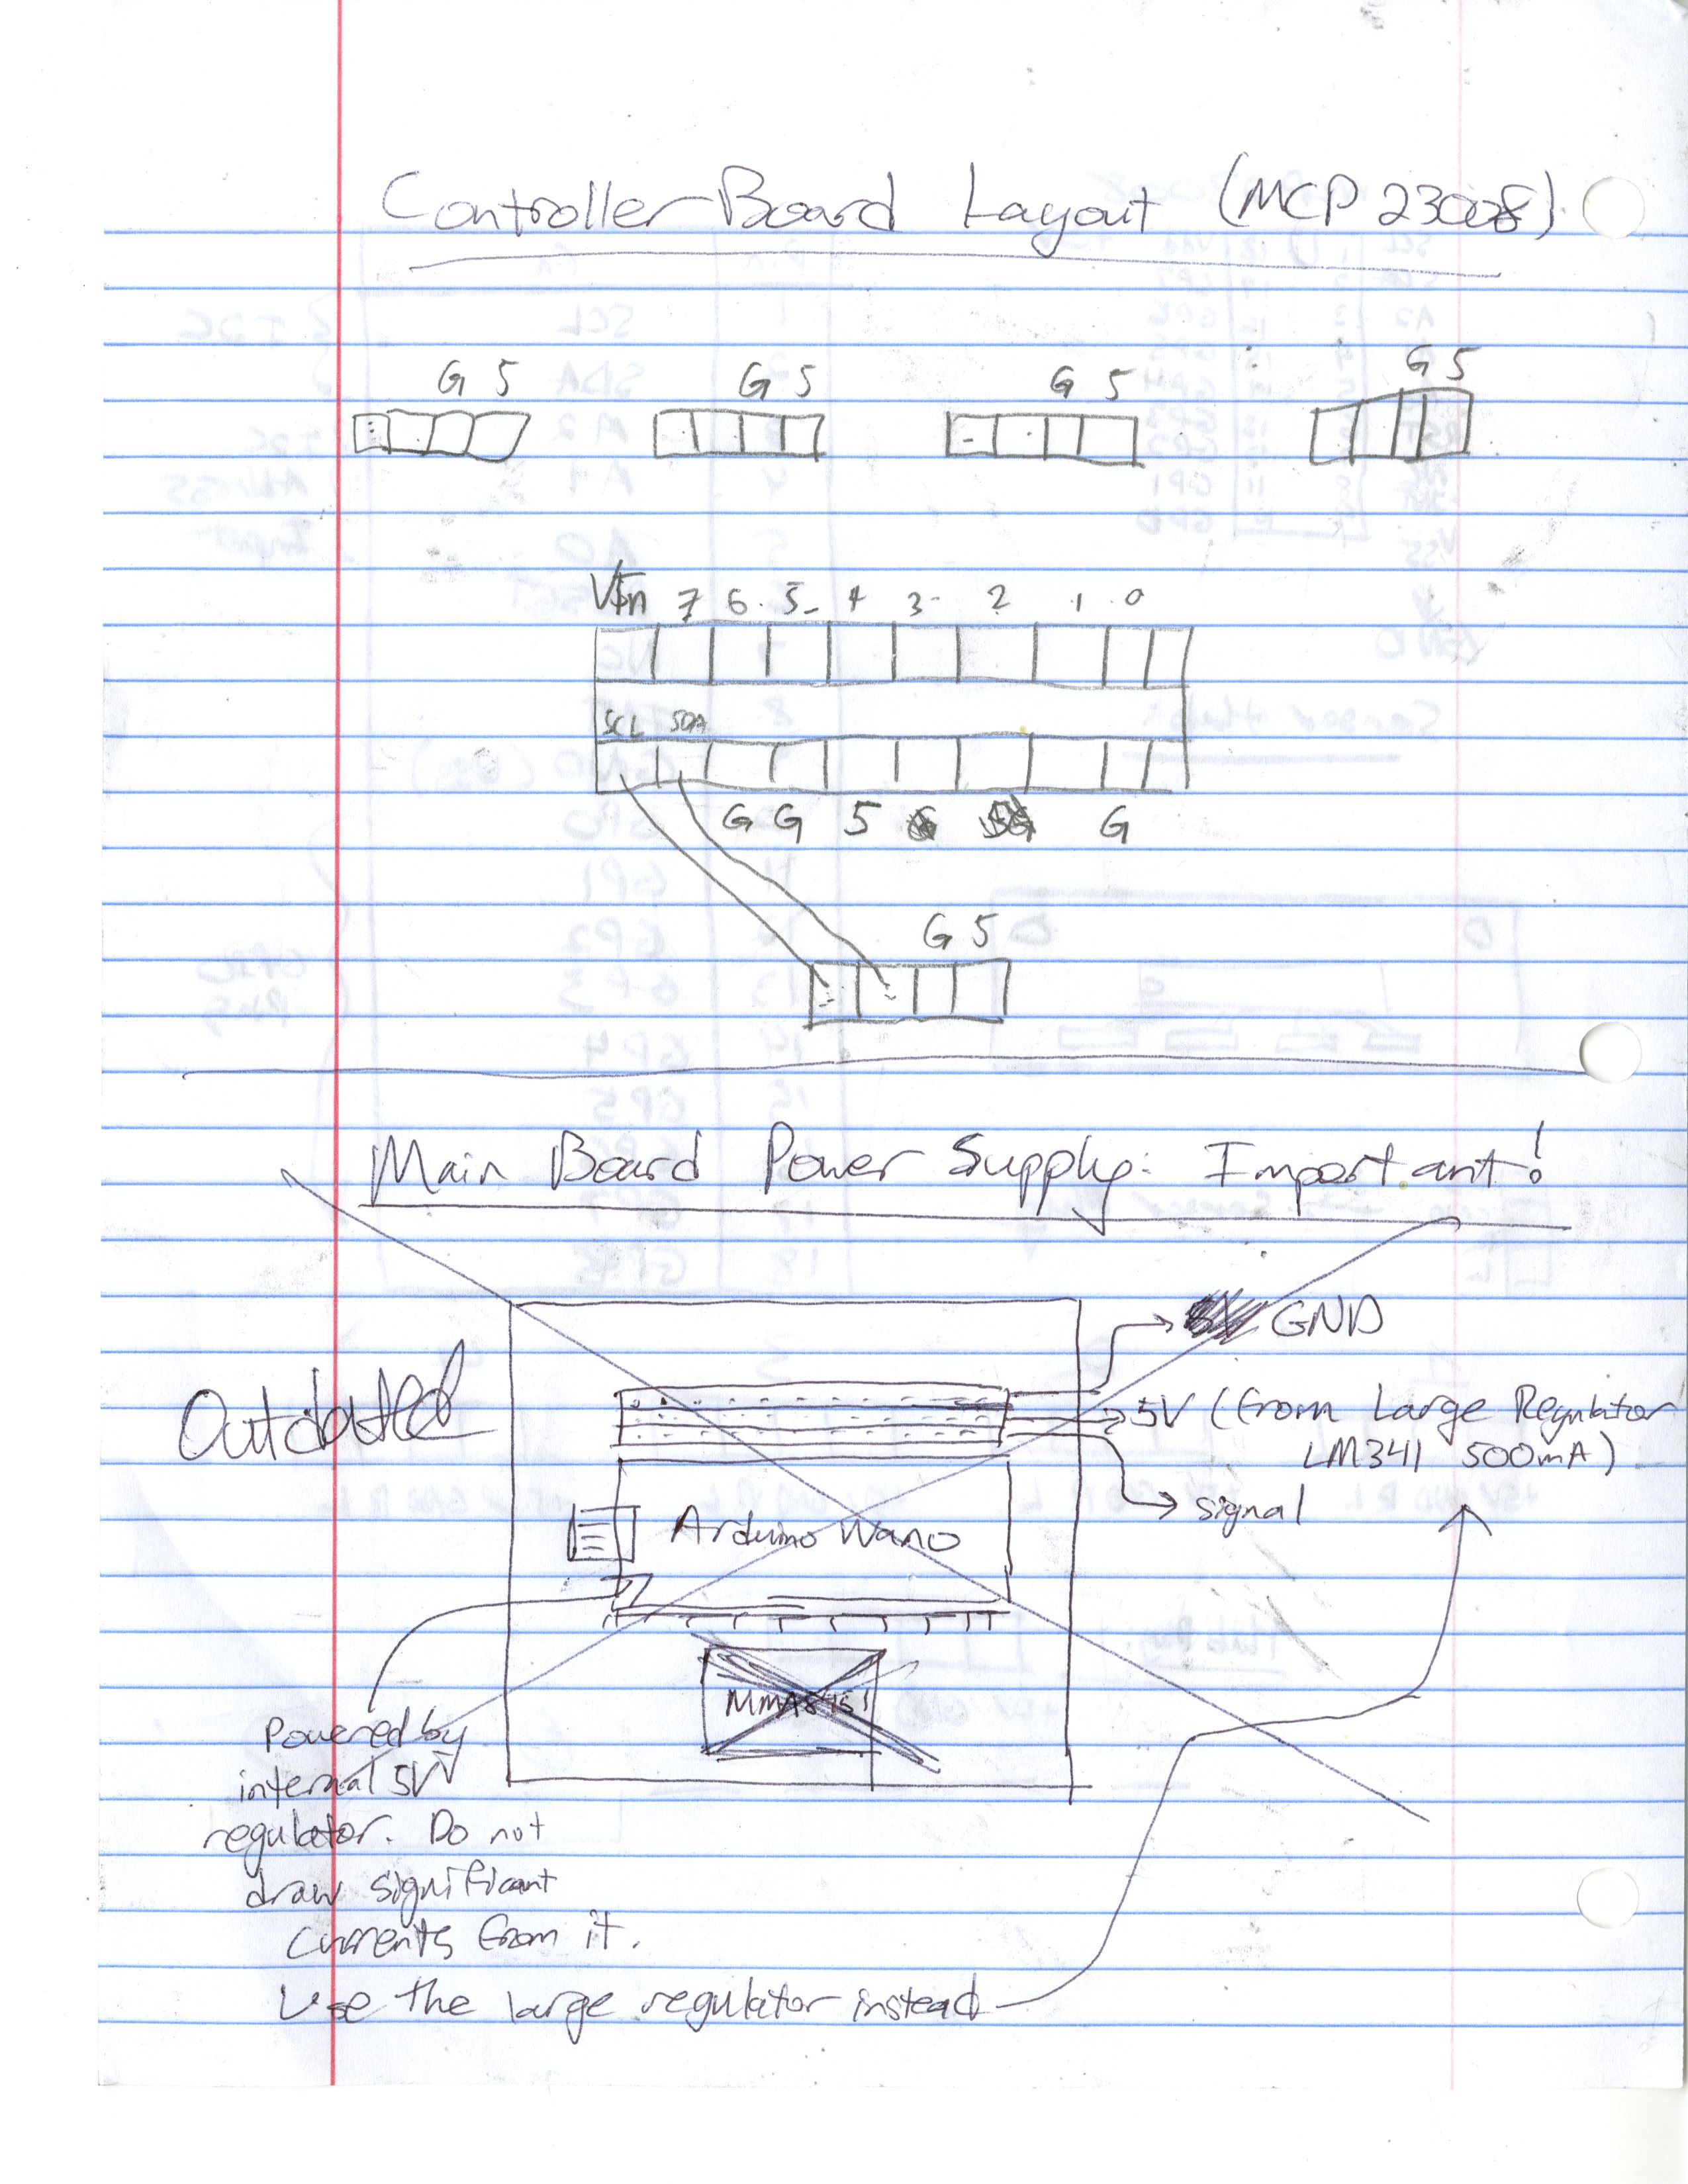 Controller Board Layout (MCP 23008)
G 5 G 5 G 5 G 5
Vin 7 6 5 4 3 2 1 0
SCL SDA
G G 5 G
G 5
Main Board Power Supply: Important!
GND
Outdated
5V (from Large Regulator
LM341 500mA)
signal
Arduino Nano
MMA8451
Powered by
internal 5V
regulator. Do not
draw significant
currents from it.
Use the large regulator instead